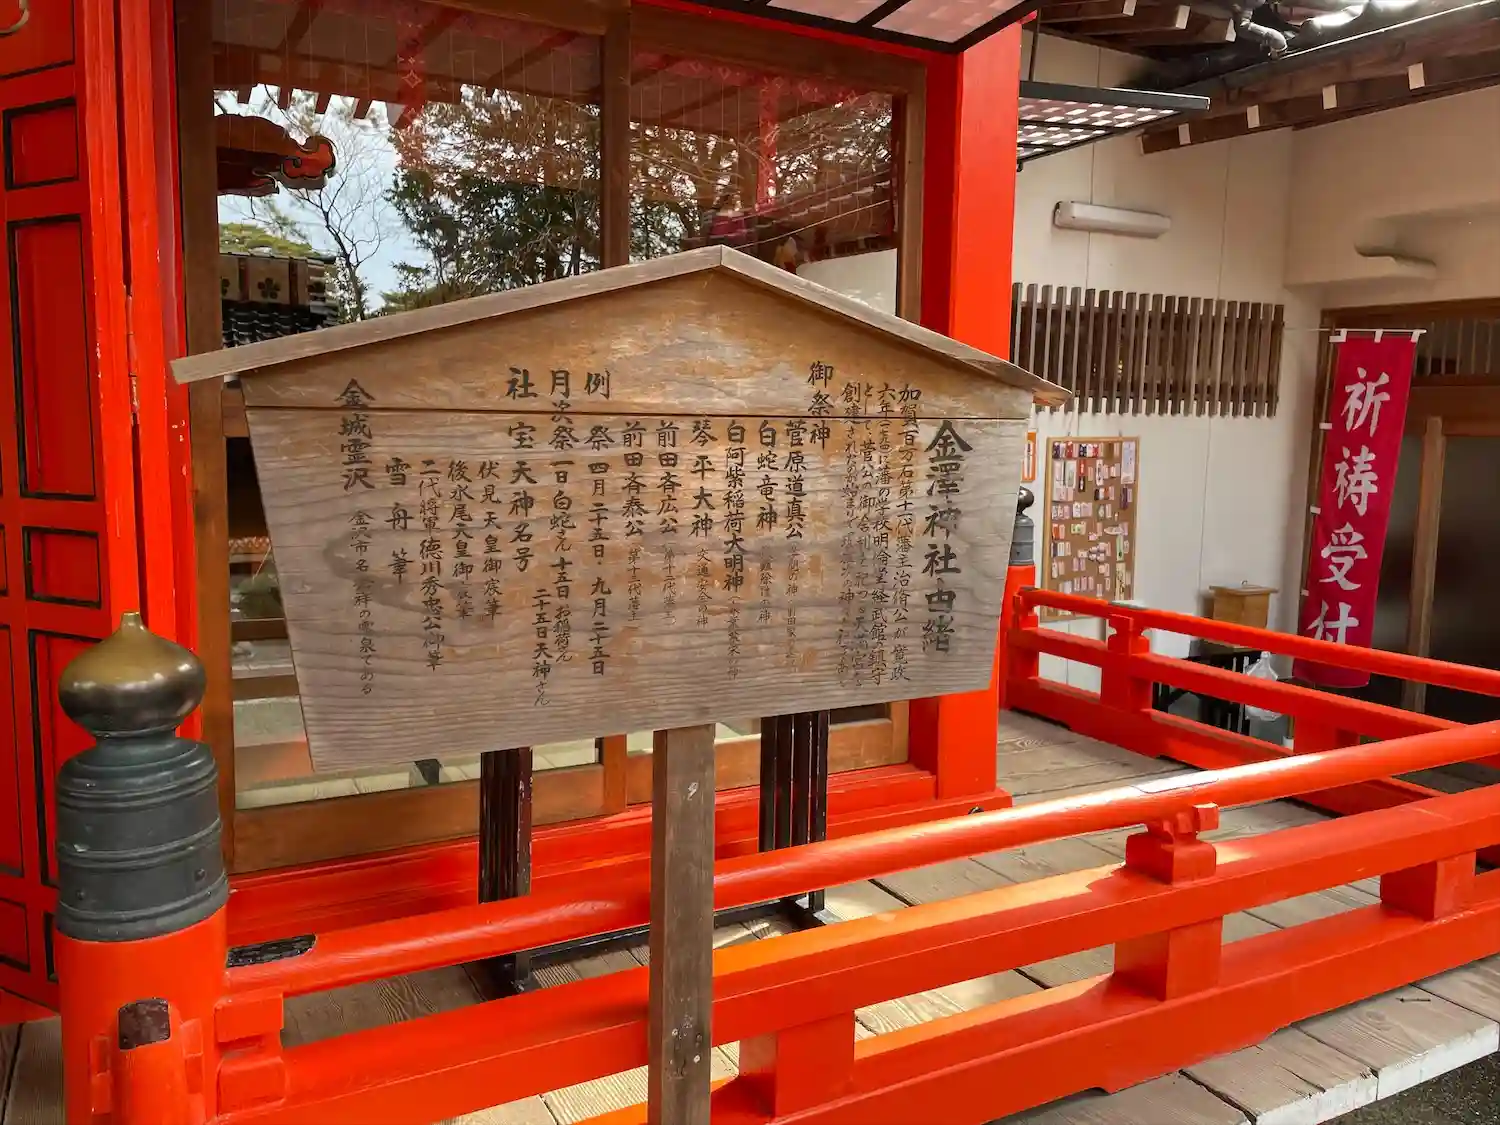 金澤神社由緒
加賀百万石第十一代藩主治脩公が寛政
六年(一七九四)藩の学校明倫堂経武館の鎮守
として菅公の御舎利を祀つる
創建されたのが始まりで
御祭神
菅原道真公
白蛇竜神
白阿紫稲荷大明神
琴平大神 交通安全の神
前田斉広公 第十二代藩主
前田斉泰公 第十三代藩主
例祭 四月二十五日・九月二十五日
月次祭 一日白蛇さん 十五日お稲荷さん
二十五日天神さん
社宝 天神名号
伏見天皇御宸筆
後水尾天皇御宸筆
二代将軍徳川秀忠公御筆
雪舟筆
金城霊沢 金沢市名 祥の霊泉である
祈祷受付